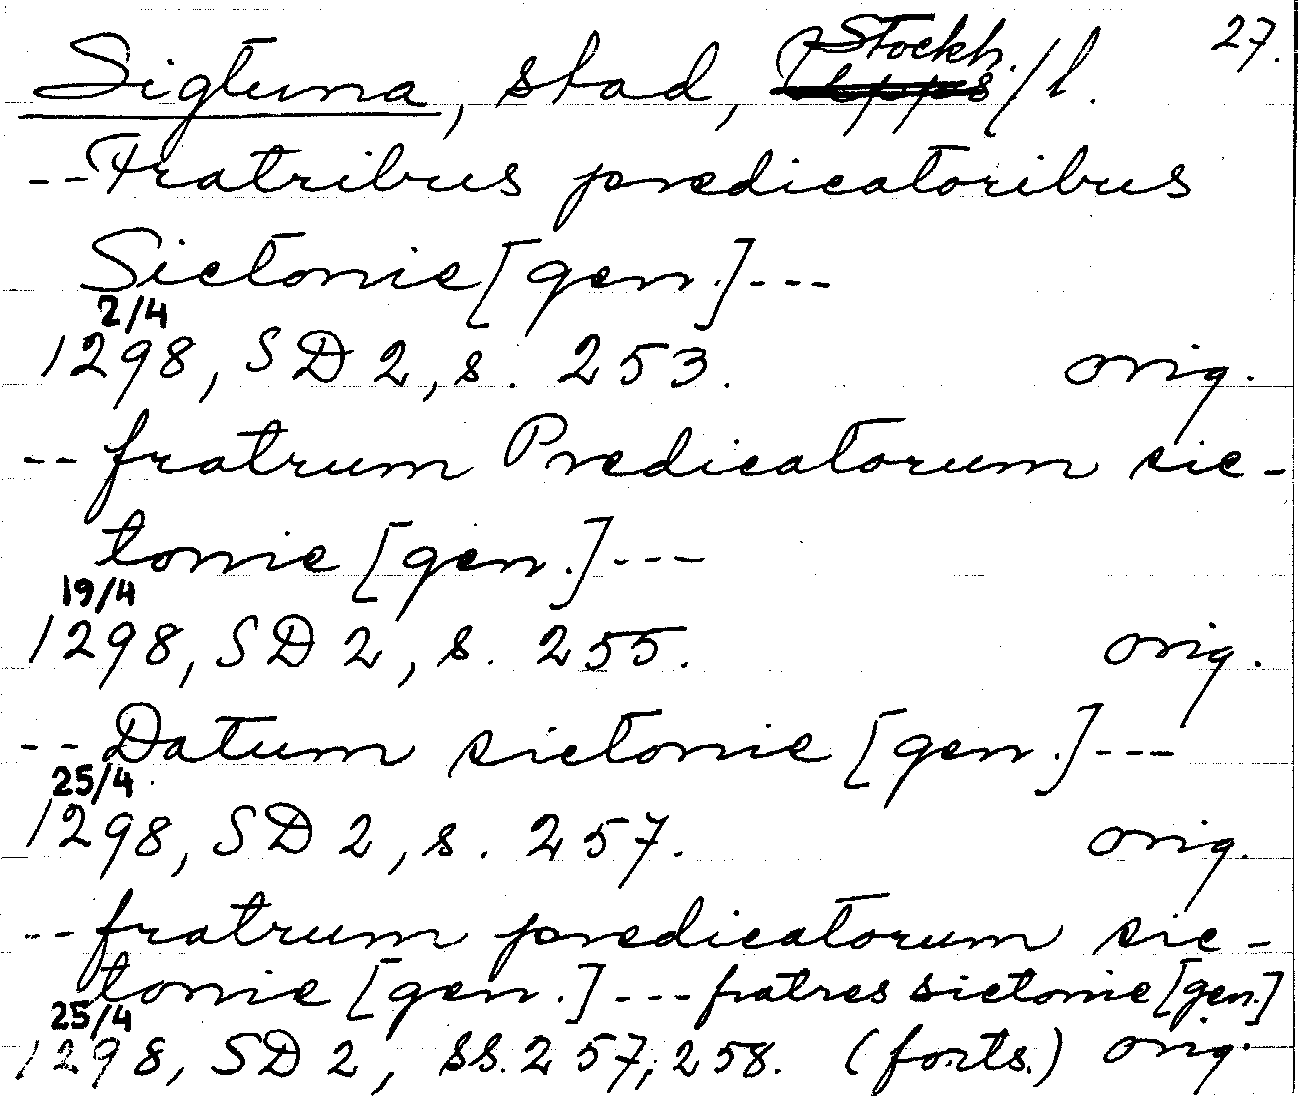 Sigtuna, stad, Stockh./l. 27.
--Fratribus predicatoribus
Sictonie [gen.]---
2/4
1298, SD 2, s. 253. orig.
--fratrum Predicatorum sic-
tonie [gen.]---
19/4
1298, SD 2, s. 255. orig.
--Datum sictonie [gen.]---
25/4
1298, SD 2, s. 257. orig.
--fratrum predicatorum sic-
tonie [gen.]---fratres sictonie [gen.]
25/4
1298, SD 2, ss. 257, 258. (forts.) orig.